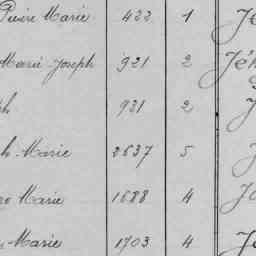 Pierre Marie 422 1 Je
Marie Joseph 921 2 Jéh
ph 921 2 J
h Marie 2637 5 J
Marie 1688 4 Jo
Marie 1703 4 Je